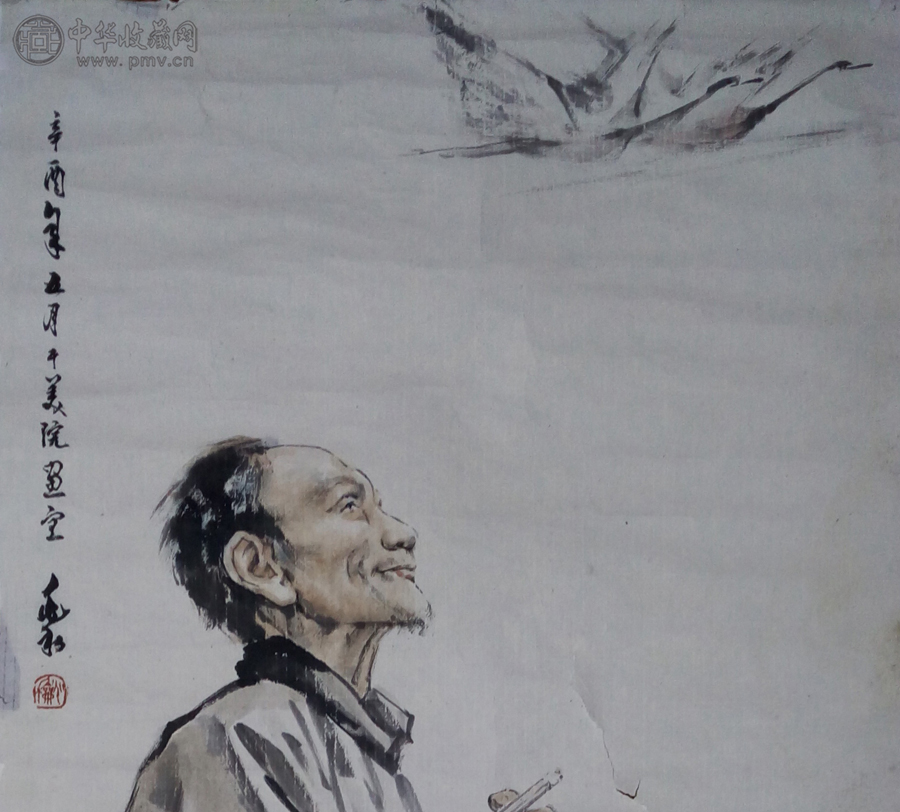 中华收藏网
www.pmv.cn
辛酉年五月于美院画室